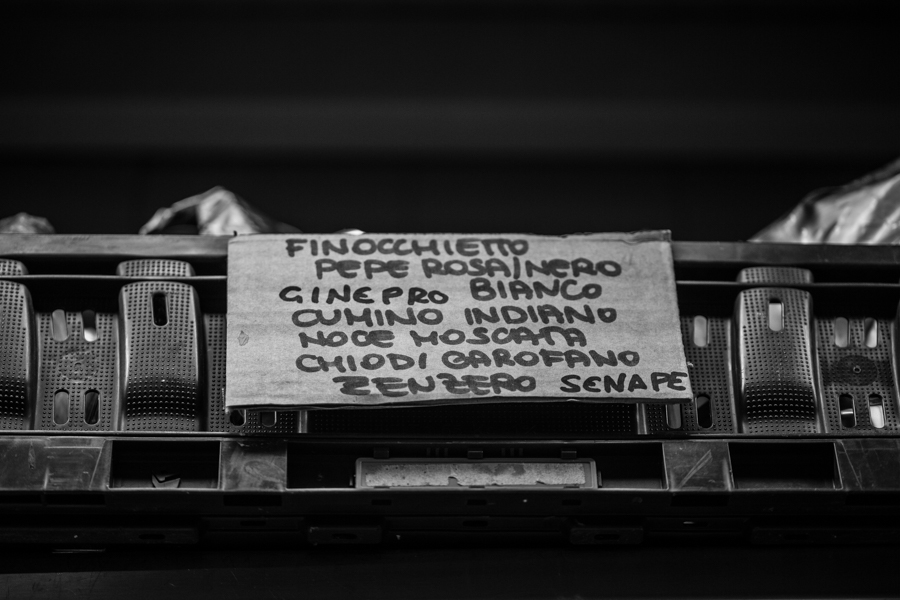 FINOCCHIETTO
PEPE ROSA/NERO
GINEPRO BIANCO
CUMINO INDIANO
NOCE MOSCATA
CHIODI GAROFANO
ZENZERO SENAPE